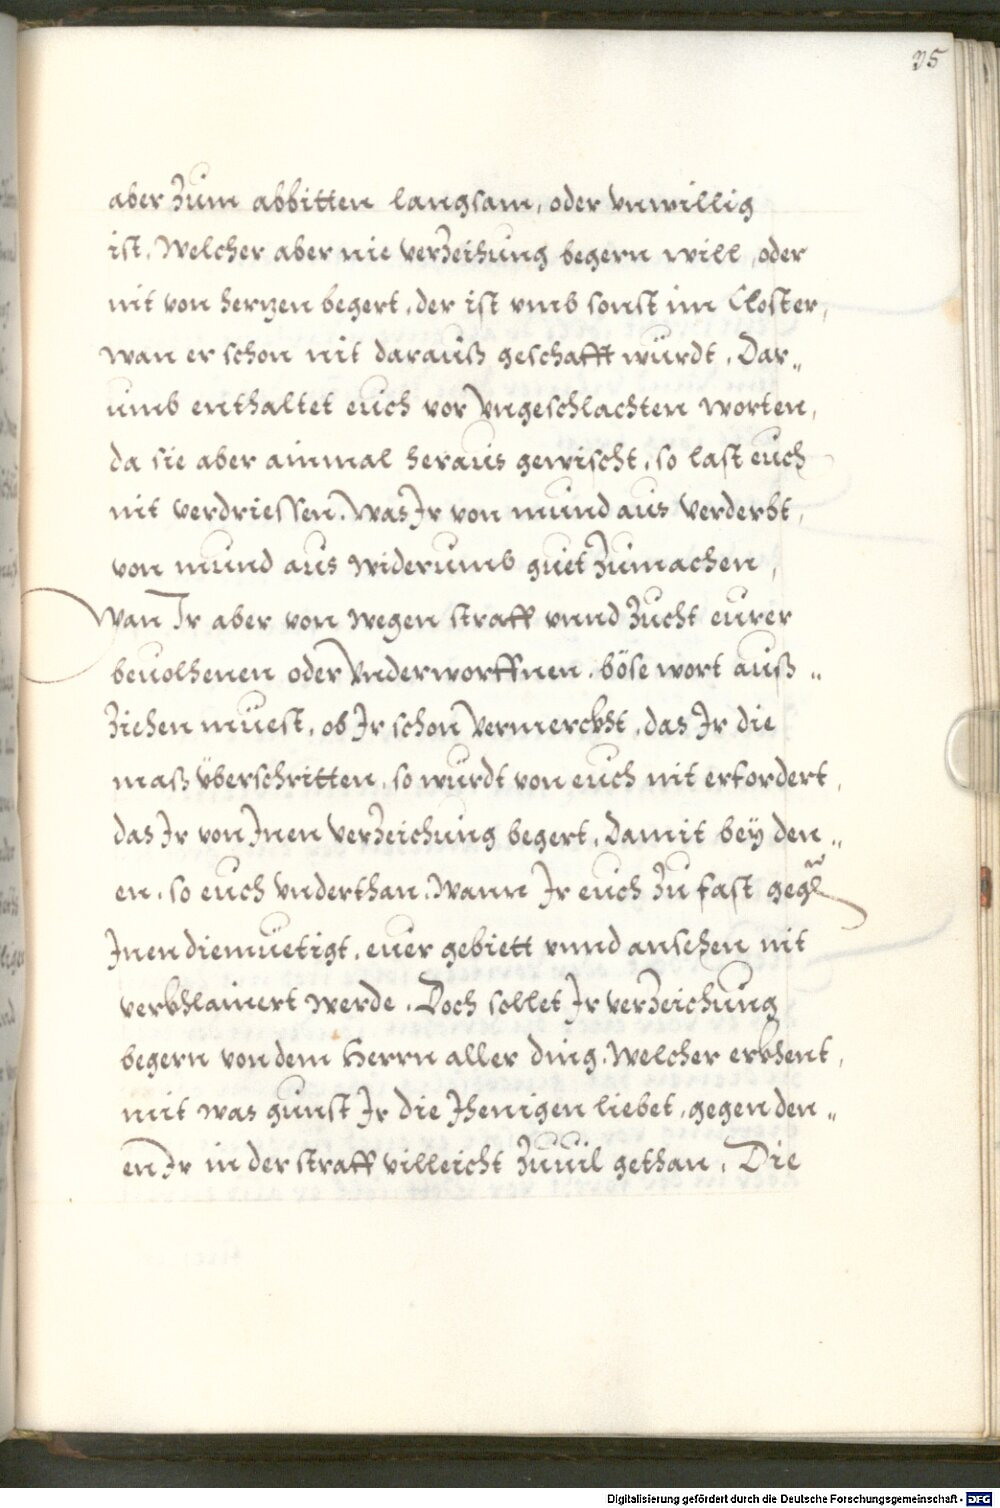 25
aber Zum abbitten langsam, oder vnwillig
ist. Welcher aber nie verZeihung begern will, oder
nit von herzen begert, der ist vmb sonst im Closter,
wan er schon nit darauß geschafft würdt. Dar„
umb enthaltet euch vor Vngeschlachten worten,
da sie aber ainmal heraus gewischt, so last euch
nit verdriessen. Was Jr von mund aus verderbt,
von mund aus widerumb guet Zumachen,
Wan Ir aber von wegen straff vnnd Zucht eurer
beuolhenen oder Vnderworffnen, böse wort auß„
Ziehen muest, ob Jr schon Vermerckht, das Jr die
maß überschritten, so wurdt von euch nit erfordert,
das Jr von Jnen verZeichung begert, Damit beÿ den„
en, so euch Vnderthan. Wann Jr euch Zu fast gegn̄
Jnen diemüetigt, euer gebiett vnnd ansehen nit
verkhlainert werde. Doch sollet Jr verZeichung
begern von dem Herrn aller ding. Welcher erkhent,
mit was gunst Jr die Jhenigen liebet, gegen den„
en Jr in der straff villeicht Zuuil gethan. Die
Digitalisierung gefördert durch die Deutsche Forschungsgemeinschaft - DFG